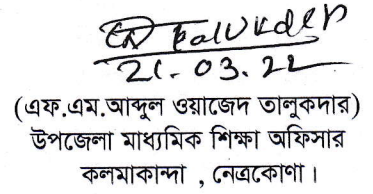 Talukder
21.03.22
(এফ.এম.আব্দুল ওয়াজেদ তালুকদার)
উপজেলা মাধ্যমিক শিক্ষা অফিসার
কলমাকান্দা , নেত্রকোণা।